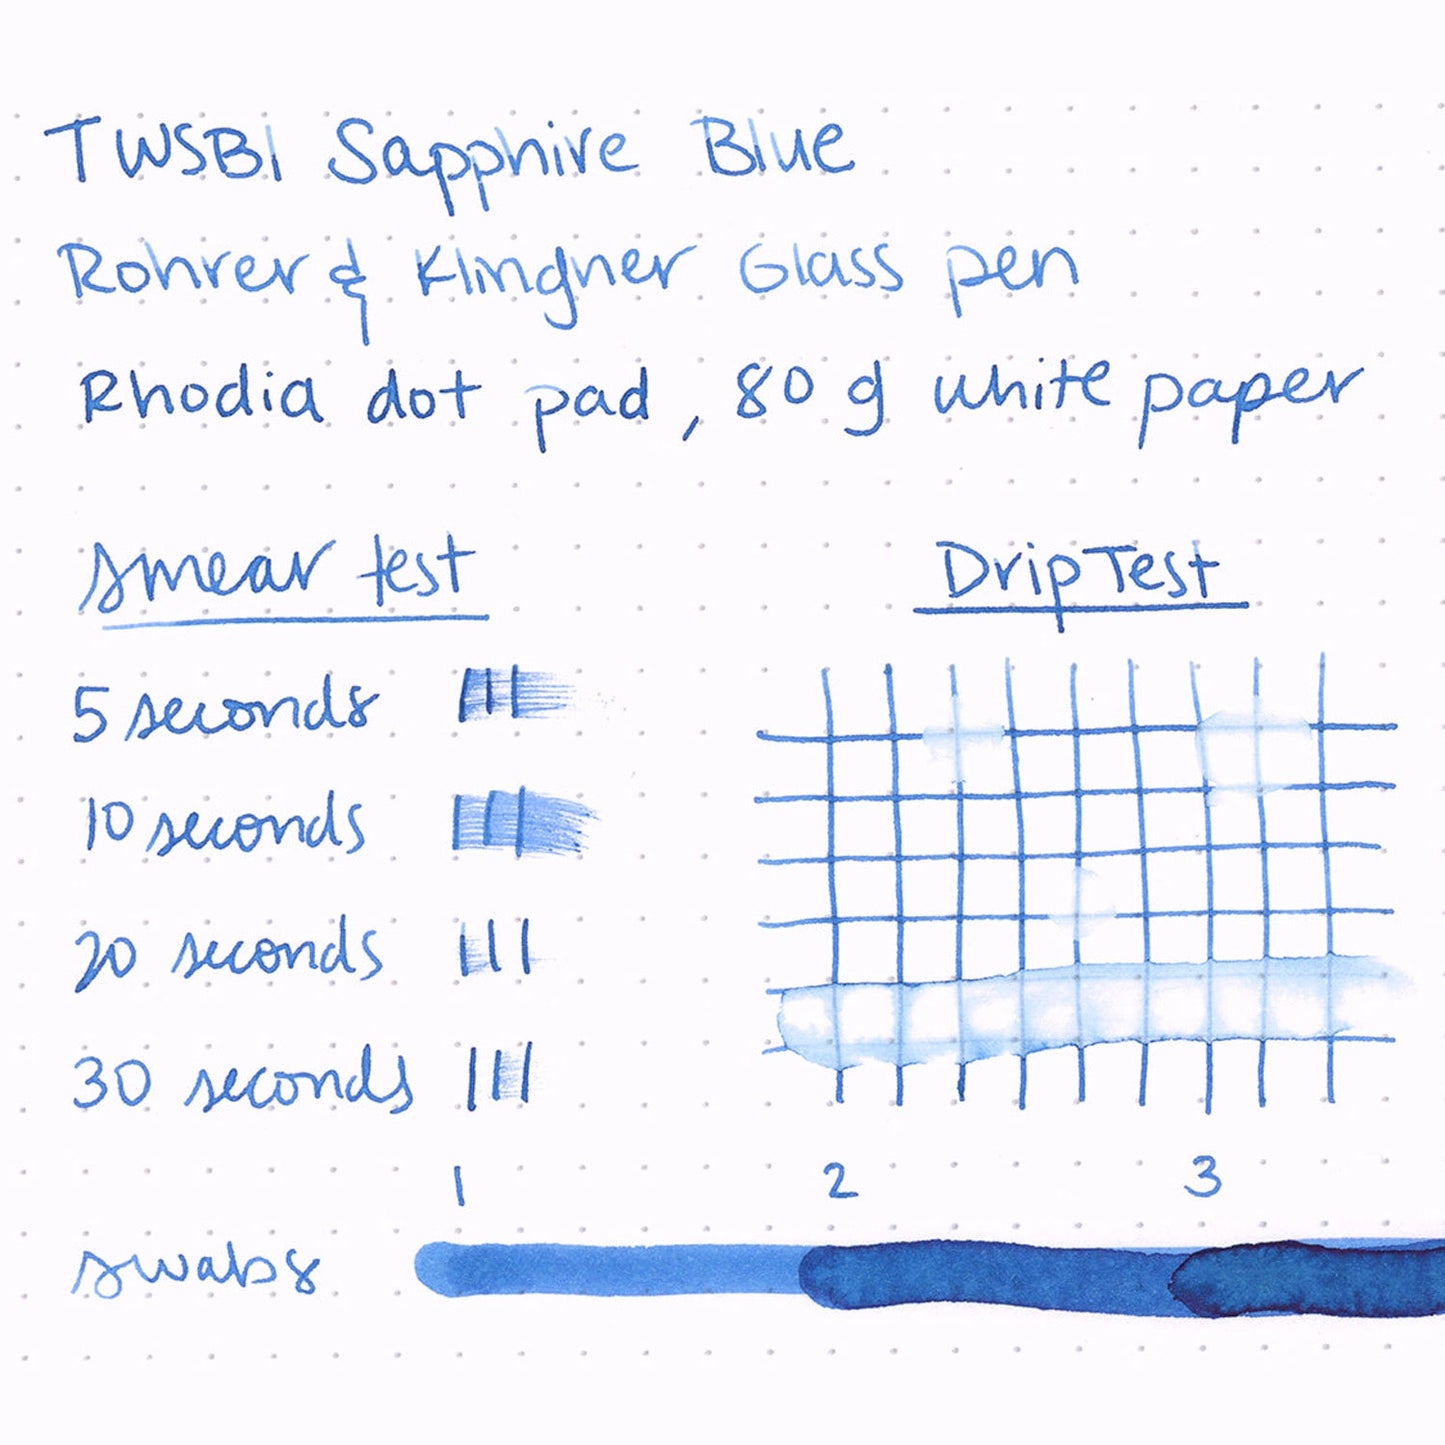 TWSBI Sapphire Blue
Rohrer & Klingner Glass pen
Rhodia dot pad, 80 g white paper
Smear test
Drip Test
5 seconds
10 seconds
20 seconds
30 seconds
1 2 3
swabs